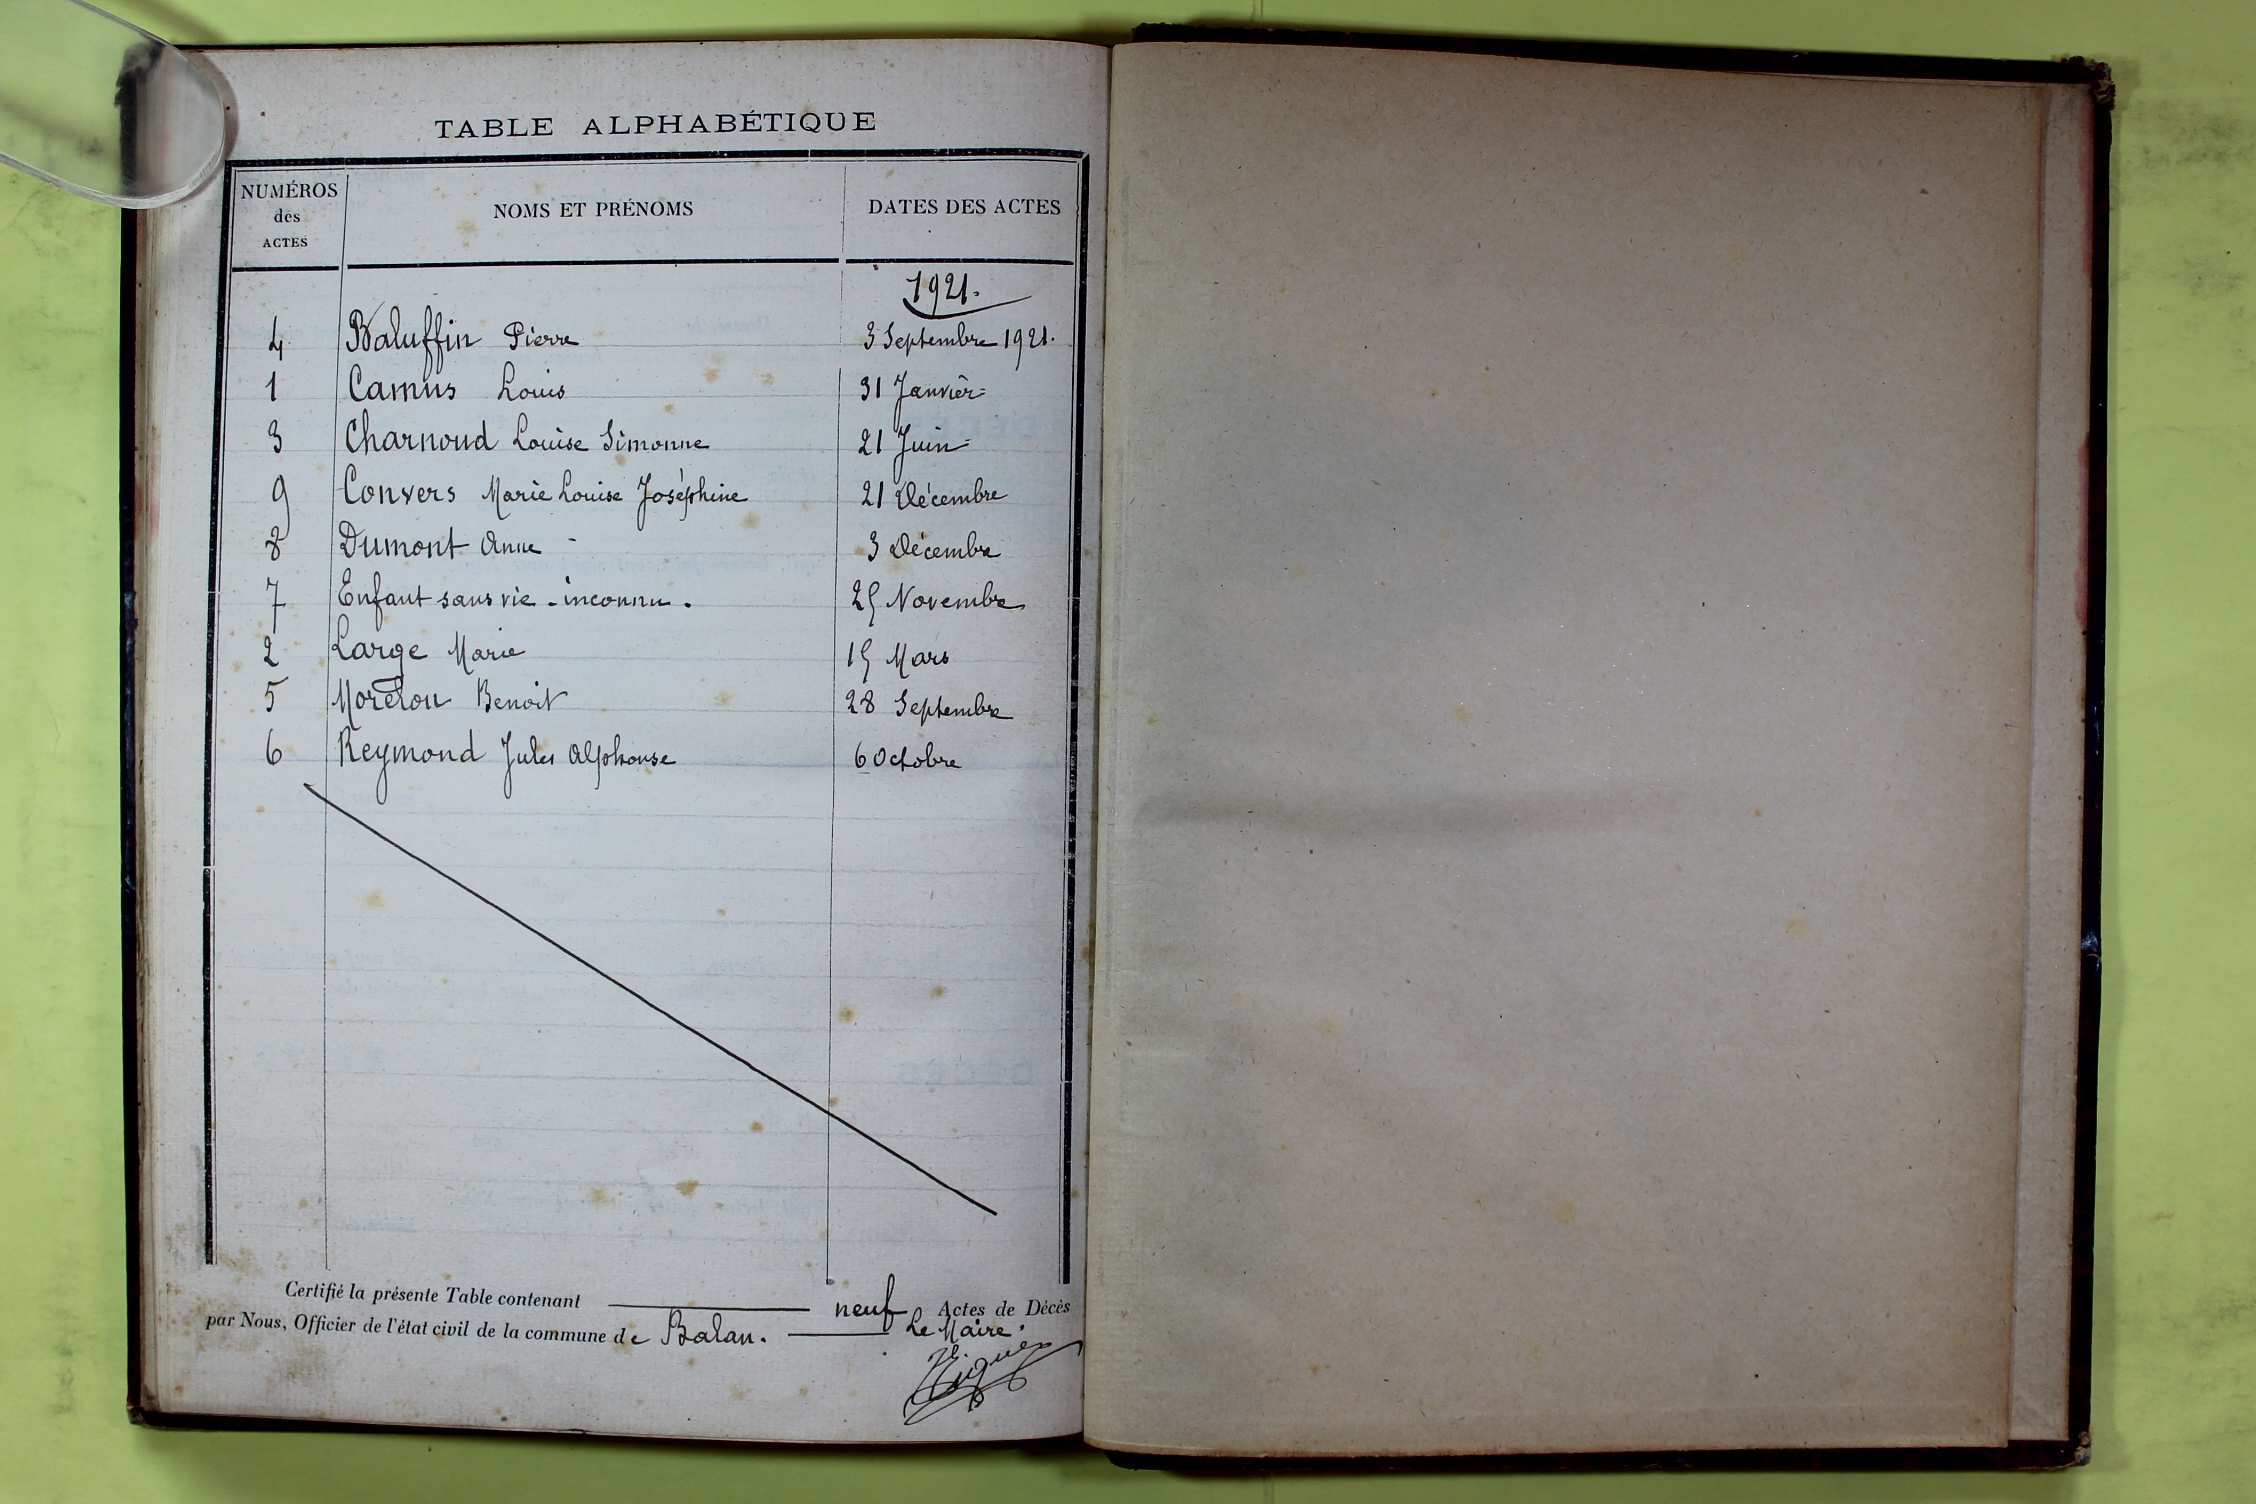 TABLE ALPHABÉTIQUE
NUMÉROS des ACTES NOMS ET PRÉNOMS DATES DES ACTES
1921.
4 Baluffin Pierre 3 Septembre 1921.
1 Camus Louis 31 Janvier
3 Charnoud Louise Simonne 21 Juin
9 Convers Marie Louise Joséphine 21 Décembre
8 Dumont Anne 3 Décembre
7 Enfant sans vie - inconnu. 25 Novembre
2 Large Marie 15 Mars
5 Morélon Benoit 28 Septembre
6 Reymond Jules Alphonse 6 Octobre
Certifié la présente Table contenant neuf Actes de Décès
par Nous, Officier de l'état civil de la commune de Balan. Le Maire.